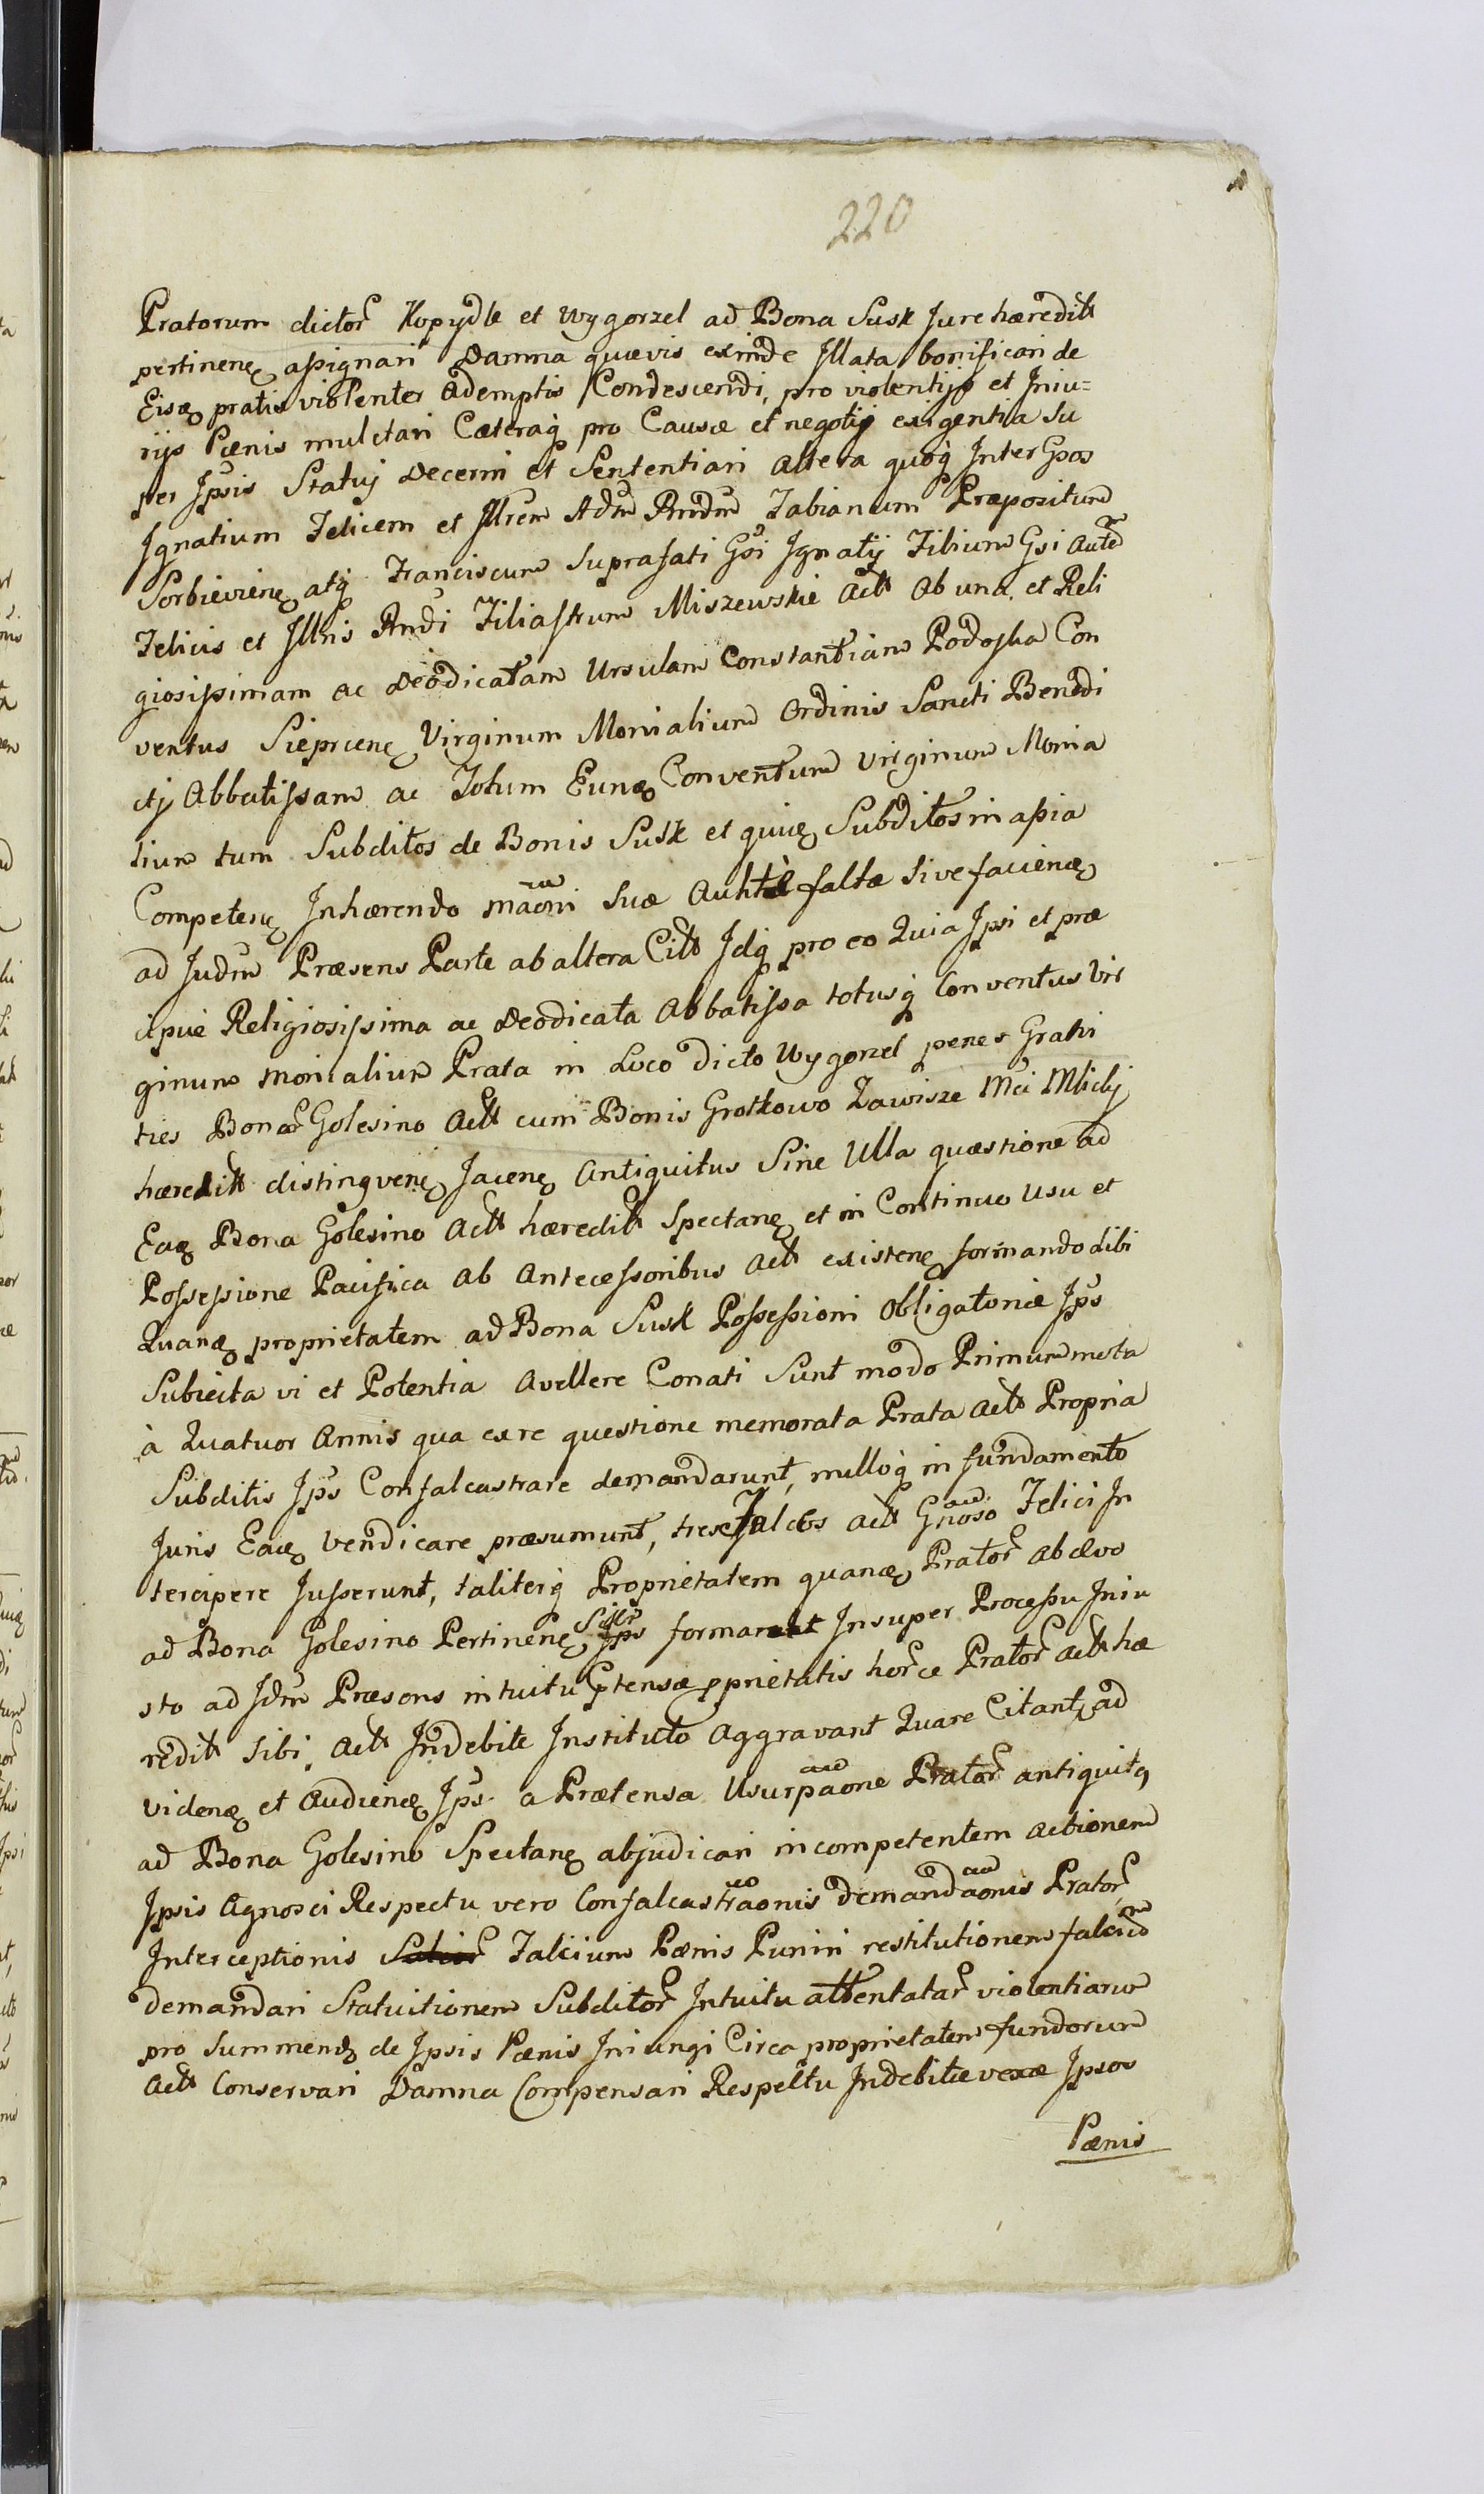 220
Pratorum dictor Kopydle et Wygorzel ad Bona Susk Jure hæredit
pertinenę aßignari Damna quævis exinde Jllata bonificari de
Eisę pratis violenter Ademptis Condescendi, pro violentijs et Iniu=
rijs Pænis mulctari Cæteraq̨ pro Causæ et negotij exigentia Su
per Jpsis Statuj Decerni et Sententiari Altera quoq̨ Inter Gsos
Jgnatium Felicem et Jllrem Adm Rndm Fabianum Præpositum
Sorbieviene atq̨ Franciscum Suprafati Gsi Jgnatij Filium Gsi Aute
Felicis et Jllris Rndi Filiastrum Miszewskie Act Ab una et Reli
giosißimam ac Deodicatam Ursulam Constantiam Podoska Con
ventus Sieprcenę Virginum Monialium Ordinis Sancti Benedi
ctj Abbatißam ac Totum Eunę Conventum Virginum Monia
lium tum Subditos de Bonis Susk et quivę Subditos in aßia
Competenę Inhærendo maoni Suæ Auhtæ faltæ sive facienę
ad Judm Præsens Parte ab altera Citt Jdq̨ pro eo Quia Jpsi et præ
cipue Religiosißima ac Deodicata Abbatißa totusq̨ Conventus Vir
ginum Monialium Prata in Loco dicto Wygorzel penes Grahi
ties Bonor Golesino Act cum Bonis Grotkowo Zawisze Mci Mlicij
hæredit distingvenę Jacenę Antiquitus Sine Ulla quæstione ad
Eaę Bona Golesino Act hæredit Spectanę et in Continuo Usu et
Poßeßione Pacifica Ab Anteceßoribus Act existenę formando sibi
Quanę proprietatem ad Bona Susk Poßeßioni Obligatoriæ Jps
Subiecta vi et Potentia Avellere Conati Sunt modo Primum meta
à Quatuor Annis qua exre questione memorata Prata Act Propria
Subditis Jps Confalcastrare demandarunt, nulloq̨ in fundamento
Juris Eaę Vendicare præsumunt, tres Falces Act Gnoso Felici In
tercipere Jußerunt, taliterq̨ Proprietatem quanę Prator ab ævo
ad Bona Golesino Pertinenę Jps formarunt Insuper Proceßu Iniu
sto ad Jdm Præsens intuitu ptensæ pprietatis horce Prator Act hæ
redit sibi Act Indebite Instituto Aggravant Quare Citant, ad
videnę et Audienę Jps a Prætensa Usurpaone Prator antiquitꝰ
ad Bona Golesino Spectanę abjudicari incompetentem Actionem
Jpsis Agnosci Respectu vero Confalcastraonis demandaonis Prator
Interceptionis Falcium Pænis Puniri restitutionem falcium
demandari Statuitionem Subditor Intuitu attentatar violentiarum
pro Summenę de Jpsis Pænis Iniungi Circa proprietatem fundorum
Act Conservari Damna Compensari Respectu Indebitæ vexæ Jpsos
Pænis